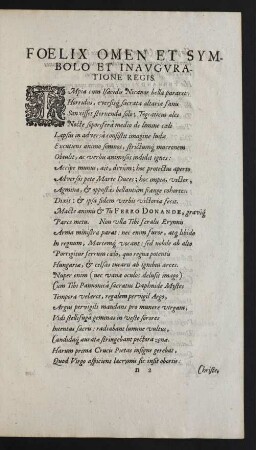 FOELIX OMEN ET SYM-
BOLO ET INAVGVRA-
TIONE REGIS.
IMpia cum Isacidis Nicanor bella pararet;
Horridus, eversisque sacrata altaria fanis
Sanxisset sternenda solo;
Nocte soporifera medio de limine cæli
Lapsa in adversa consistit imagine Iudæ
Excutiens animo somnos, strictumque mucronem
Obtulit; ac verbis animosis indidit ignes:
Accipe munus, ait, divûm; hoc protectus aperto
Adversos pete Marte Duces; hoc impius, victor,
Agmina, & oppositas bellantum frange cohortes:
Dixit: & ipsa fidem verbis victoria fecit.
Macte animis & Tu FERRO DONANDE, gravique
Parce metu. Non ulla Tibi feralis Erynnis
Arma ministra parat: nec enim furiæ, atque libido
In regnum, Martemque vocant: sed nobile ab alto
Porrigitur ferrum cælo, quo regna potentis
Hungariæ, & celsas tuearis ab ignibus arces.
Nuper enim (nec vana oculos delusit imago)
Cum Tibi Pannonicâ sacratus Daphnide Mystes
Tempora velaret, regalem pervigil Argo,
Argus pervigili mandans pro munere virgam;
Vidi stelligeras geminas in veste sorores
Iuventas sacris: radiabant lumine vultus,
Candidaque aurata stringebant pectora zona.
Harum prima Crucis Pietas insigne gerebat,
Quod Virgo aspiciens lacrymis sic insit obortis.
n 2 Christe,